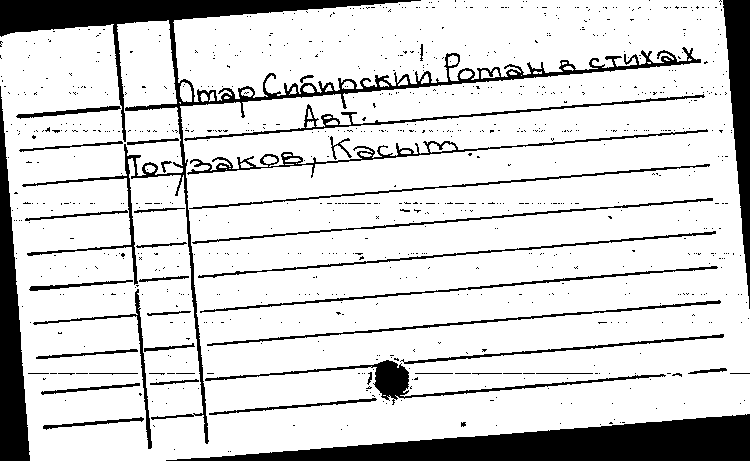 Отар Сибирский. Роман в стихах
Авт.:
Тогузаков, Касым.